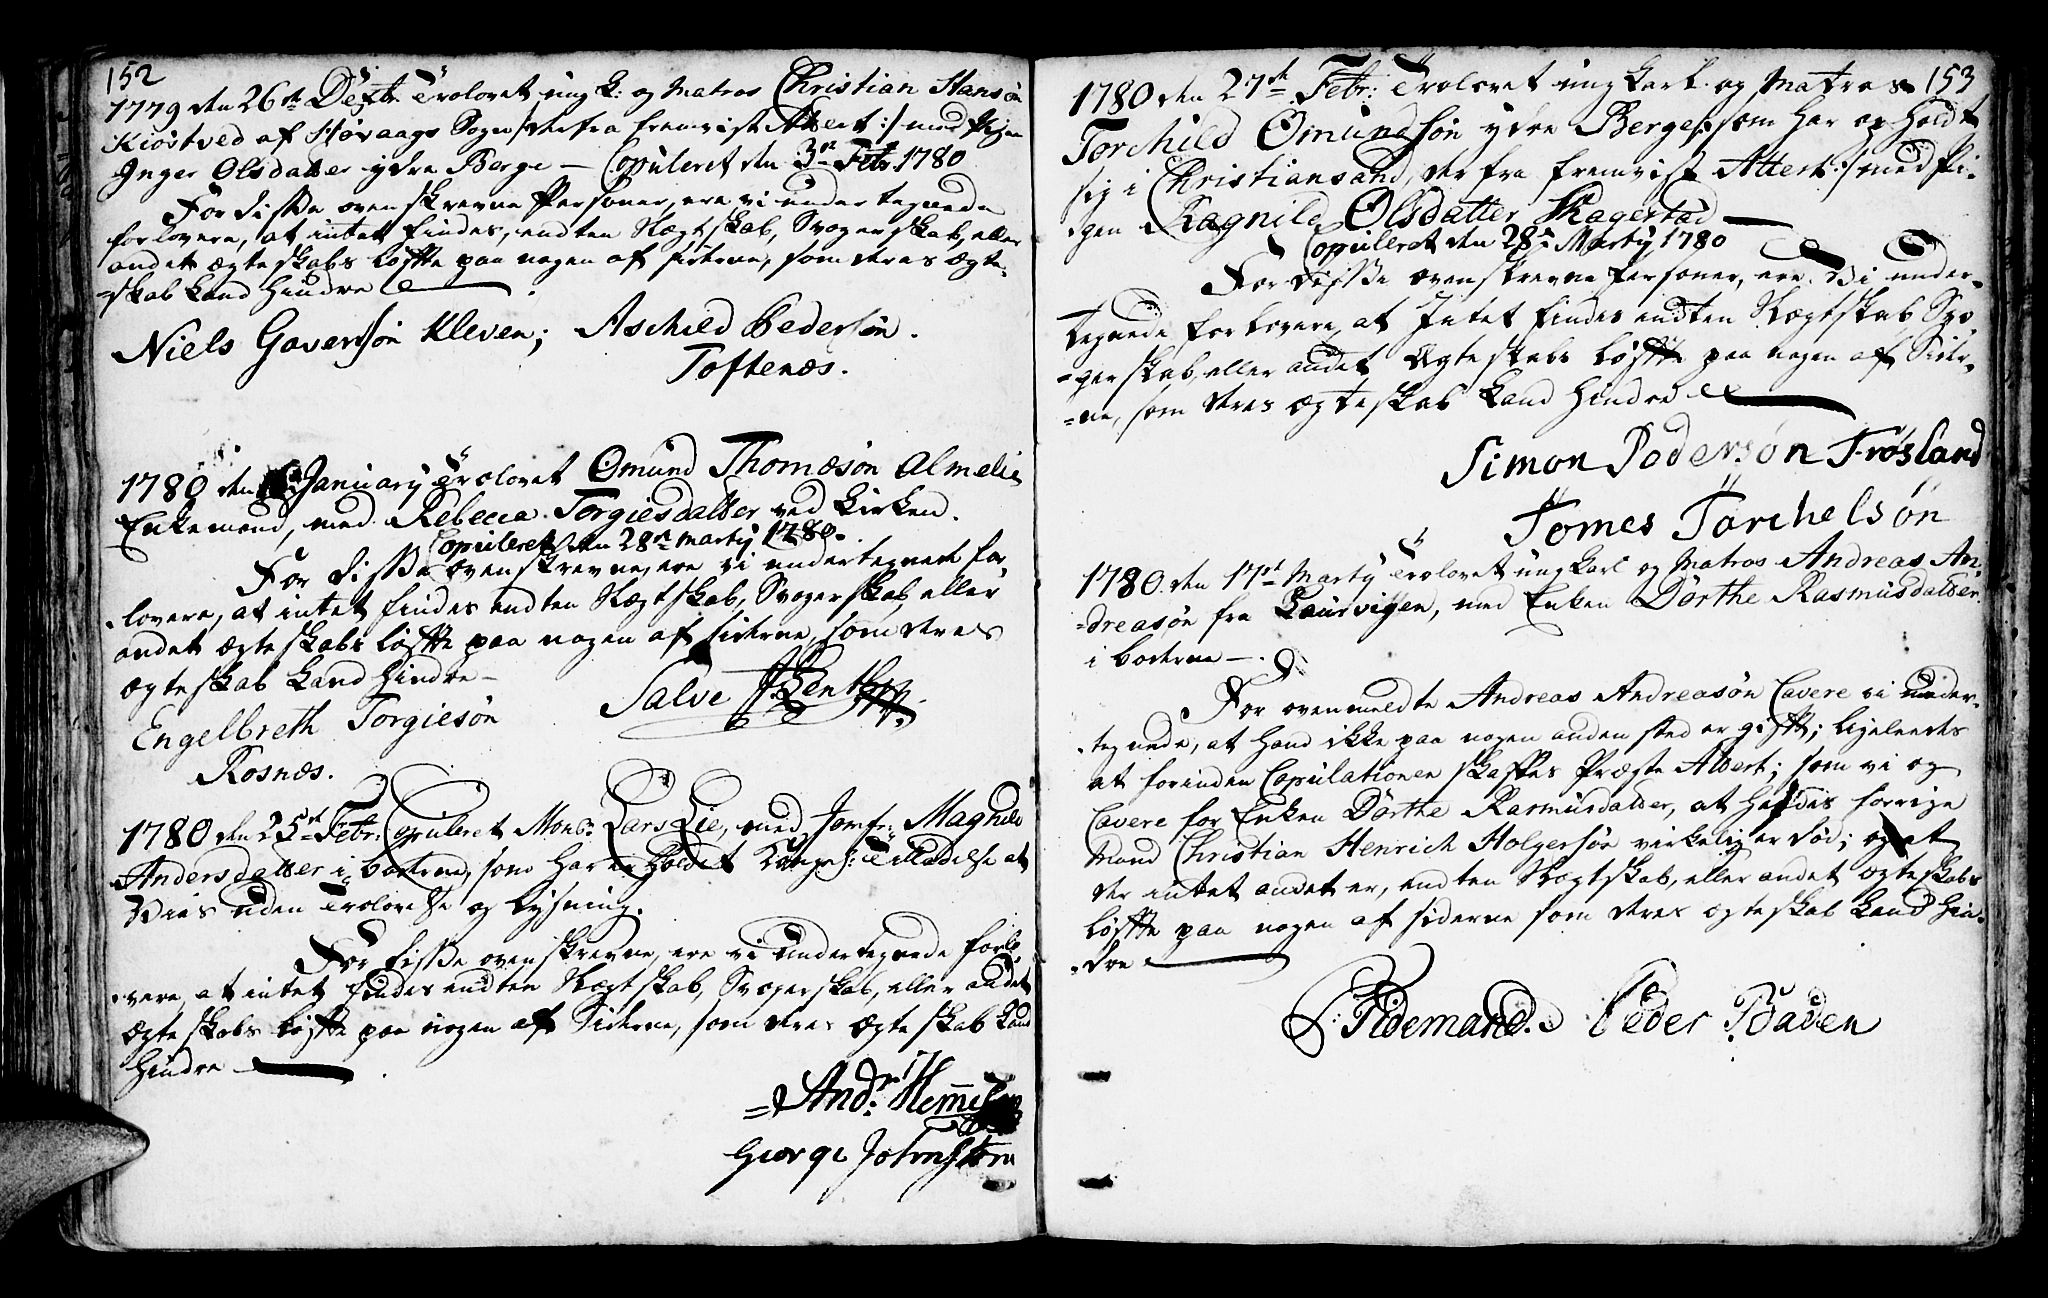 152
1779 den 26de Decbr. Trolovet ung K: og Matros Christian Hansøn
Kiøstved af Høvaags Sogn /: derfra fremvist Attest :/ med Pigen
Inger Olsdatter ydre Berge — Copuleret den 3de Febr. 1780
For disse ovenskrevne Personer, ere vi undertegnede
forlovere, at intet findes, endten Slægtskab, Svogerskab, eller
andet ægteskabs løfte paa nogen af siderne, som deres ægte-
-skab kand hindre
Niels Goversøn Kleven; Aschild Pedersøn.
Toftenæs.
1780 den January Trolovet Omund Thomæsøn Almelie
Enkemand, med Rebecca Torgiesdatter ved Kirken.
Copuleret den 28de Marty 1780.
For disse ovenskrevne, ere vi undertegnede for-
-lovere, at intet findes endten Slægtskab, Svogerskab, eller
andet ægteskabs løfte paa nogen af siderne, som deres
ægteskab kand hindre —
Engelbreth Torgiesøn Salve Benthsøn
Rosnæs.
1780 den 25de Febr: Copuleret Monsr. Lars Lie, med Jomfr: Magnild
Andersdatter i boderne, som har erholdet Konge: Tilladelse at
Vies uden Trolovelse og lysning.
For disse ovenskrevne, ere vi undertegnede forlo-
-vere, at intet findes endten Slægtskab, Svogerskab, eller andet
ægteskabs løfte paa nogen af Siderne, som deres ægteskab kand
hindre
Andr.
George Johnston
153
1780 den 27de Febr: Trolovet ungkarl og Matros
Torchild Omundsøn ydre Berge /: som har opholdt
sig i Christiansand, der fra fremvist Attest :/ med Pi-
-gen Ragnild Olsdatter Skagestad —
Copuleret den 28de Marty 1780
For disse ovenskrevne Personer, ere vi under-
tegnede forlovere, at Intet findes endten Slægtskab Svo-
-gerskab, eller andet Ægteskabs løfte paa nogen af Sider-
-ne, som deres ægteskab kand hindre
Simon Podersøn Frøsland
Tomes Torchelsøn
1780 den 17de Marty Trolovet ungkarl og Matros Andreas An-
-dreasøn fra Laurvigen, med Enken Dorthe Rasmusdatter
i boderne —.
For ovenmeldte Andreas Andreasøn Cavere vi under-
-tegnede, at hand ikke paa nogen anden sted er gift; ligeleedes
at forinden Copulationen skaffes Præste Attest; som vi og
Cavere for Enken Dorthe Rasmusdatter, at hendes forrige
Mand Christian Henrich Holgersøn virkelig er død; og at
der intet andet er, endten Slægtskab, eller andet ægteskabs
løfte paa nogen af siderne som deres ægteskab kand hin-
-dre
Tidemand. Peder Baden